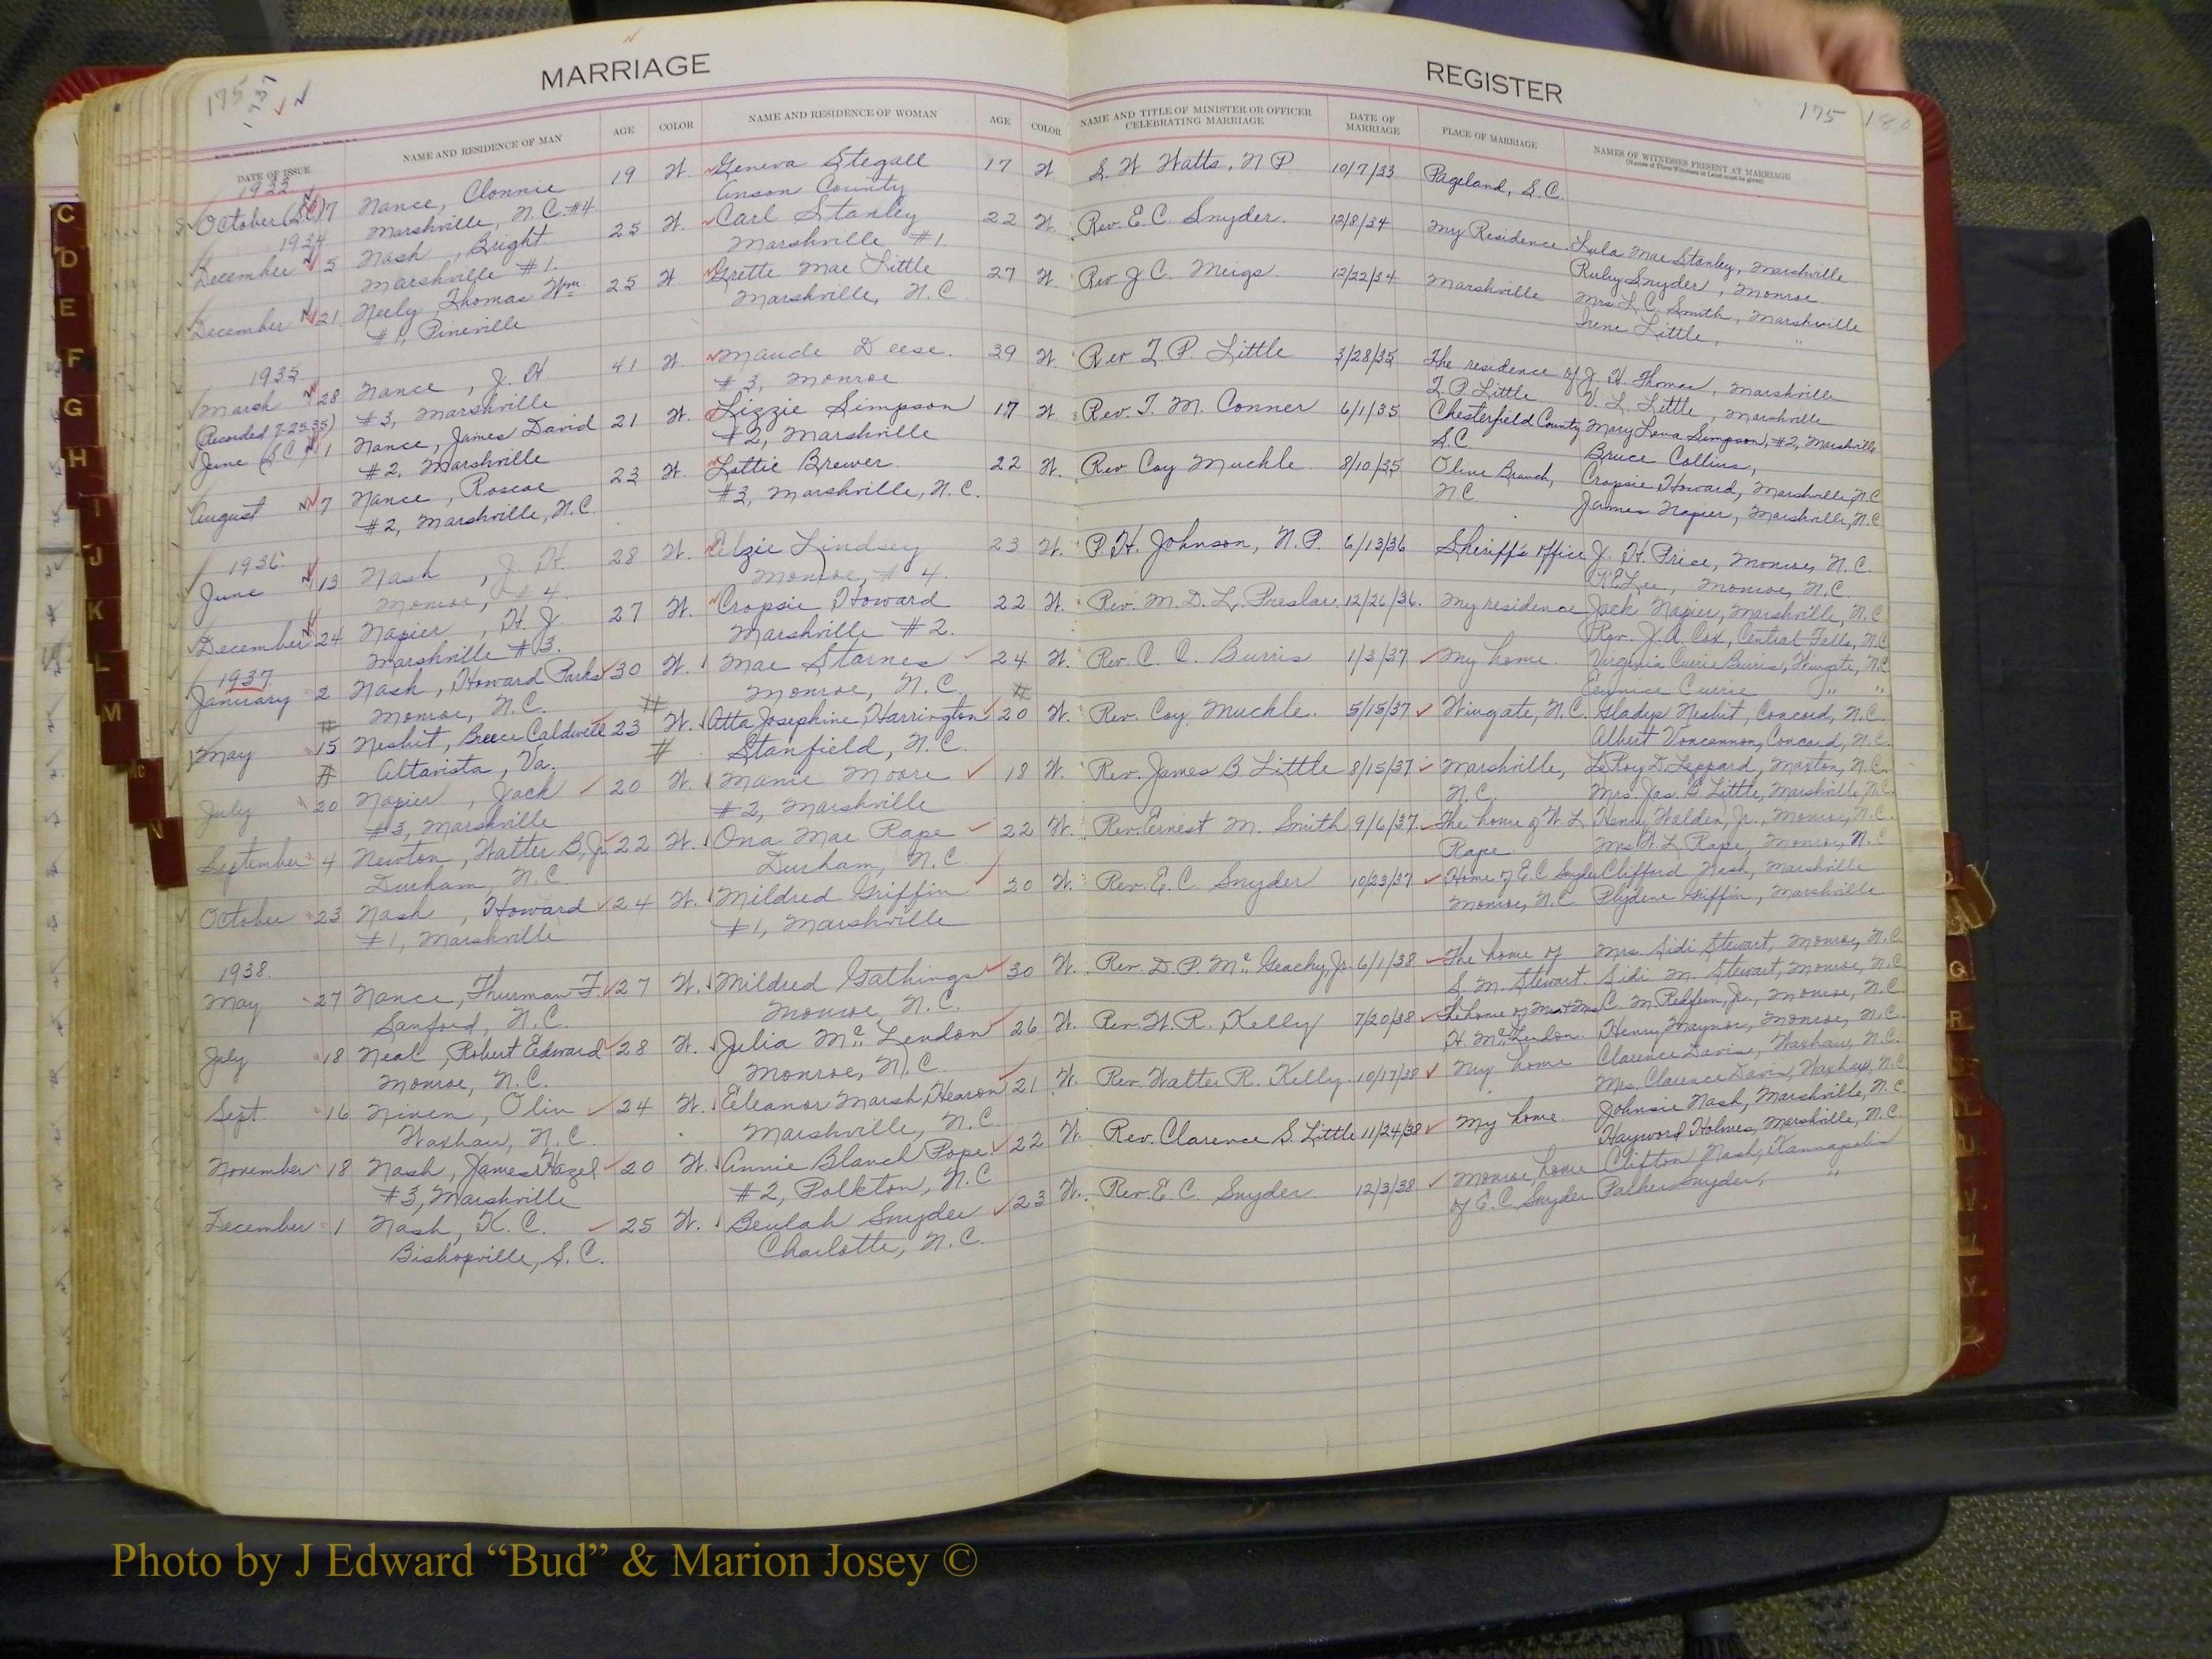 MARRIAGE REGISTER
175 1937 175 180
DATE OF ISSUE NAME AND RESIDENCE OF MAN AGE COLOR NAME AND RESIDENCE OF WOMAN AGE COLOR NAME AND TITLE OF MINISTER OR OFFICER CELEBRATING MARRIAGE DATE OF MARRIAGE PLACE OF MARRIAGE NAMES OF WITNESSES PRESENT AT MARRIAGE
(Names of Three Witnesses at Least must be given)
1933
October (S.C.) 7 Nance, Clonnie 19 W. Geneva Stegall 17 W. S. W Watts, N P. 10/7/33 Pageland, S.C.
Marshville, N.C. #4 Anson County
1934
December 5 Nash, Bright 25 W. Carl Stanley 22 W. Rev. E. C. Snyder. 12/8/34 My Residence. Lula Mae Stanley, Marshville
Marshville #1. Marshville #1. Ruby Snyder, Monroe.
December 21 Neely, Thomas Wm. 25 W Grette Mae Little 27 W. Rev J. C. Meigs. 12/22/34 Marshville Mrs. L. C. Smith, Marshville
#1, Pineville Marshville, N.C. Irene Little, "
1935
Marsh 28 Nance, J. H. 41 W. Maude Deese. 39 W. Rev T. P. Little 3/28/35 The residence of J. H. Thomas, Marshville
#3, Marshville #3, Monroe T. P. Little V. L. Little, Marshville
(Recorded 7-25-35)
June (S.C.) 1 Nance, James David 21 W. Lizzie Simpson 17 W. Rev. T. M. Conner 6/1/35 Chesterfield County Mary Leva Simpson, #2, Marshville
#2, Marshville #2, Marshville S.C. Bruce Collins,
August 7 Nance, Roscoe 23 W. Lottie Brewer. 22 W. Rev. Coy Muckle. 8/10/35 Olive Branch, Cropsie Howard, Marshville, N.C
#2, Marshville, N.C. #3, Marshville, N.C. N C James Napier, Marshville, N.C.
1936
June 13 Nash, J. H. 28 W. Elzie Lindsey 23 W. P. H. Johnson, N.P. 6/13/36 Sheriff's office J. H. Price, Monroe, N.C.
Monroe, #4. Monroe, #4. Lee, Monroe, N.C.
December 24 Napier, H. J. 27 W. Cropsie Howard 22 W. Rev. M. D. L. Preslar. 12/26/36. My residence Jack Napier, Marshville, N.C
Marshville #3. Marshville #2. Rev. J. A. Cox, Central Falls, N.C
1937
January 2 Nash, Howard Parks 30 W. Mae Starnes 24 W. Rev. C. C. Burris 1/3/37 My home. Virginia Currie Burris, Wingate, N.C
Monroe, N.C. Monroe, N.C. Eunice Currie " "
May 15 Nesbit, Breece Caldwell 23 W. Atta Josephine Harrington 20 W. Rev. Coy. Muckle. 5/15/37 Wingate, N.C. Gladys Nesbit, Concord, N.C.
Altavista, Va. Stanfield, N.C. Albert Voncannon, Concord, N.C.
July 20 Napier, Jack 20 W. Mamie Moore 18 W. Rev. James B. Little 8/15/37 Marshville, LeRoy D. Leppard, Maxton, N.C.
#3, Marshville #2, Marshville N.C. Mrs. Jas. B. Little, Marshville, N.C.
September 4 Newton, Walter B, Jr 22 W. Ona Mae Rape 22 W. Rev. Ernest M. Smith 9/6/37 The home of W. L. Henry Walden, Jr., Monroe, N.C.
Durham, N.C. Durham, N.C Rape. Mrs. W. L. Rape, Monroe, N.C
October 23 Nash, Howard 24 W. Mildred Griffin 20 W. Rev. E. C. Snyder 10/23/37 Home of E.C. Snyder Clifford Nash, Marshville
#1, Marshville #1, Marshville Monroe, N.C. Plydene Griffin, Marshville
1938.
May 27 Nance, Thurman F. 27 W. Mildred Gathings 30 W. Rev. D. P. Mc Geachy, Jr. 6/1/38 The home of Mrs. Sidi Stewart, Monroe, N.C.
Sanford, N.C. Monroe, N.C. S. M. Stewart. Sidi M. Stewart, Monroe, N.C
July 18 Neal, Robert Edward 28 W. Julia Mc Lendon 26 W. Rev. W. R. Kelly 7/20/38 The home of Mr & Mrs C. M. Redfern, Jr., Monroe, N.C.
Monroe, N.C. Monroe, N.C. H McLendon. Henry Maynor, Monroe, N.C.
Sept. 16 Niven, Olin 24 W. Eleanor Marsh Hearon 21 W. Rev. Walter R. Kelly. 10/17/38 My home Clarence Davis, Waxhaw, N.C.
Waxhaw, N.C. Marshville, N.C. Mrs. Clarence Davis, Waxhaw, N.C.
November 18 Nash, James Hazel 20 W. Annie Blanch Pope 22 W. Rev. Clarence S. Little 11/24/38 My home Johnsie Nash, Marshville, N.C.
#3, Marshville #2, Polkton, N.C Hayword Holmes, Marshville, N.C.
December 1 Nash, K. C. 25 W. Beulah Snyder 23 W. Rev. E. C. Snyder. 12/3/38 Monroe, home Clifton Nash, Kannapolis
Bishopville, S.C. Charlotte, N.C. of E.C. Snyder. Parker Snyder, "
C
D
E
F
G
H
I
J
K
L
M
Mc
N
Q
R
V
Y
Photo by J Edward “Bud” & Marion Josey ©